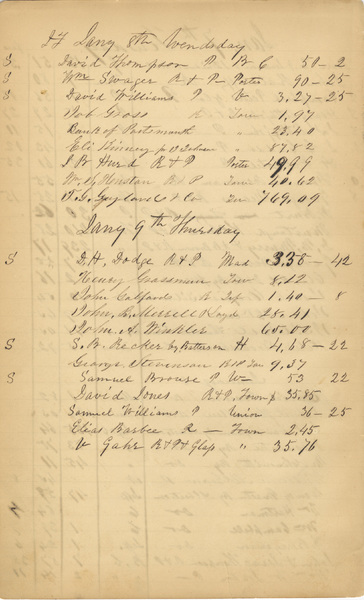 Jany 8th Wendsday
S David Thompson P B C 50-2
S Wm Swager R & P - Porter 90-25
S David Williams P V 3.27-25
Rob Gross R Town 1.97
Bank of Portsmouth " 23.40
Eli Kinney " 87.82
J W Hurd R & P Porter 4999
W. Huston R & P Town 40.62
& Co Town 769.09
Jany 9th Thursday
S D.H. Dodge R & P Mad 3.38-42
Henry Grassman Tow 8.12
John R 1.40-8
John, R. Merrell Royd 28.41
John A. Winkler 60.00
S S. B. Recker by Batterson H 4,68-22
George Stevenson R & P Tow 9.37
S Samuel Brouse P Wn 53 22
David Jones R & P, Town p 35,85
Samuel Williams P Union 36-25
Elias Barbee R - Town 2,45
V Gahr R & P & Glass " 35.76